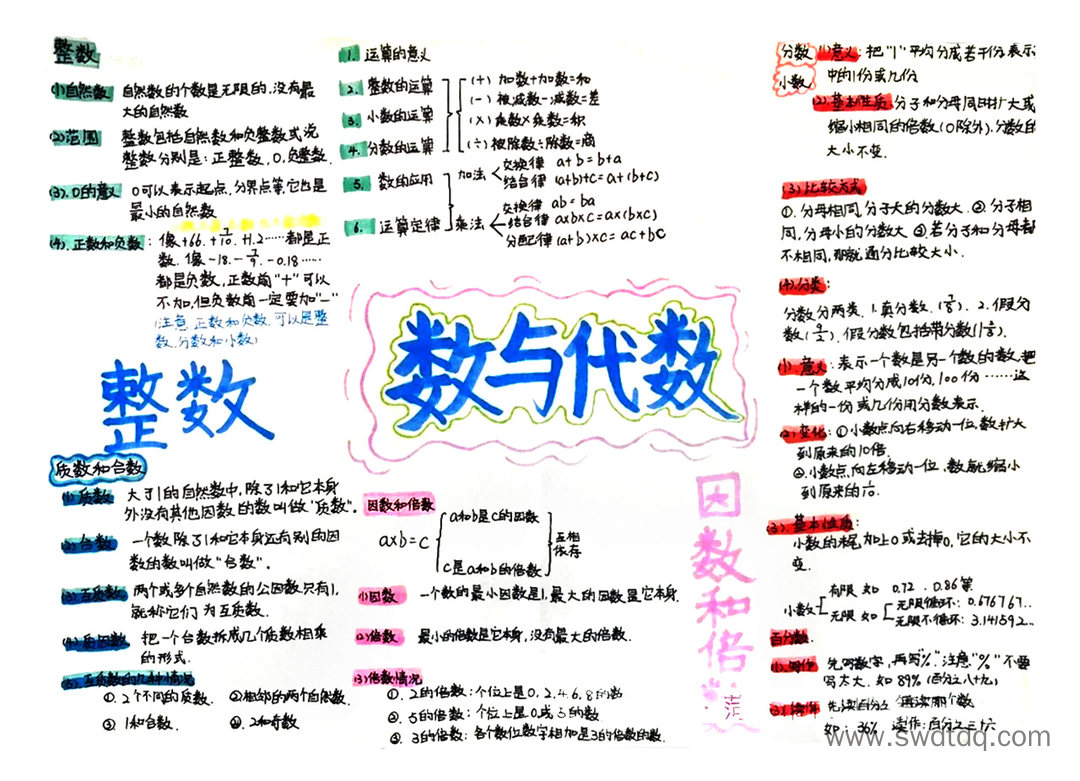 整数
(1)自然数 自然数的个数是无限的,没有最
大的自然数
(2)范围 整数包括自然数和负整数或说
整数分别是:正整数,0,负整数.
(3).0的意义 0可以表示起点,分界点等,它也是
最小的自然数
(4).正数和负数: 像+66.
都是正
数.像-18.-7/9.-0.18……
都是负数,正数前"+"可以
不加,但负数前一定要加"-"
(注意.正数和负数,可以是整
数,分数和小数)
整数
质数和合数
(1)质数 大于1的自然数中,除了1和它本身
外没有其他因数的数叫做"质数".
(2)合数 一个数,除了1和它本身还有别的因
数的数叫做"合数".
(3)互质数 两个或多个自然数的公因数只有1,
就称它们为互质数.
(4)质因数 把一个合数拆成几个质数相乘
的形式.
(5)互质数的几种情况
①.2个不同的质数. ②相邻的两个自然数.
③ 1和合数. ④.2和奇数
1. 运算的意义
2. 整数的运算
3. 小数的运算
4. 分数的运算
(+) 加数+加数=和
(-) 被减数-减数=差
(×) 乘数×乘数=积
(÷) 被除数÷除数=商
5. 数的应用
6. 运算定律
加法
交换律 a+b=b+a
结合律 (a+b)+c=a+(b+c)
乘法
交换律 ab=ba
结合律 axbxc=ax(bxc)
分配律 (a+b)xc=ac+bc
数与代数
因数和倍数
axb=c
a和b是c的因数
c是a和b的倍数
互相
依存
(1)因数 一个数的最小因数是1,最大的因数是它本身.
(2)倍数 最小的倍数是它本身,没有最大的倍数.
(3)倍数情况
①.2的倍数:个位上是0.2.4.6.8的数
②.5的倍数:个位上是0或5的数
③.3的倍数:各个数位数字相加是3的倍数的数.
因数和倍数
分数
小数
(1)意义:把"1"平均分成若干份,表示
中的1份或几份
(2)基本性质.分子和分母同时扩大或
缩小相同的倍数(0除外),分数的
大小不变.
(3)比较方式
①.分母相同,分子大的分数大.②.分子相
同,分母小的分数大 ③.若分子和分母都
不相同,那就通分比较大小.
(4).分类:
分数分两类.1.真分数.(7/8). 2.假分
数(9/2),假分数包括带分数
(1).意义:表示一个数是另一个数的数,把
一个数平均分成10份,100份……这
样的一份或几份用分数表示.
(2).变化:①小数点向右移动一位,数扩大
到原来的10倍.
②.小数点,向左移动一位.数就缩小
到原来的1/10.
(3).基本性质:
小数的末尾加上0或去掉0,它的大小不
变.
小数
有限 如 0.72 . 0.86等
无限 如
无限循环:0.676767..
无限不循环:3.141592...
百分数.
(1).写作 先写数字,再写"%",注意"%"不要
写太大.如89%(百分之八十九)
读作 先读百分之 再读那个数
如:36% 读作:百分之三十六
www.swdtdq.com